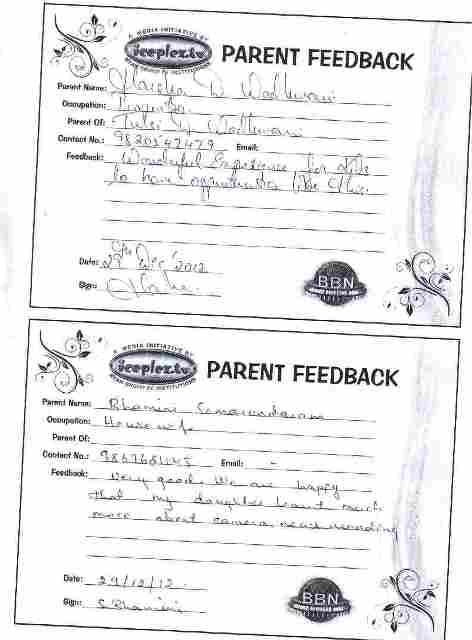 A MEDIA INITIATIVE BY
iceplex.tv
STAR GROUP OF INSTITUTIONS
PARENT FEEDBACK
Parent Name: D. Wadhwani
Occupation:
Parent Of: Tulsi Wadhwani
Contact No.: 9820547479 Email:
Feedback: Wonderful Experience for kids
to have opportunities like this.
Date: 29th Dec' 2012
Sign:
BBN
A MEDIA INITIATIVE BY
iceplex.tv
STAR GROUP OF INSTITUTIONS
PARENT FEEDBACK
Parent Name: Bhamini
Occupation: Housewife
Parent Of:
Contact No.: Email: -
Feedback: Very good. We are happy
that my daughter learnt much
more about camera, news reading
Date: 29/12/12.
Sign: S. Bhamini
BBN